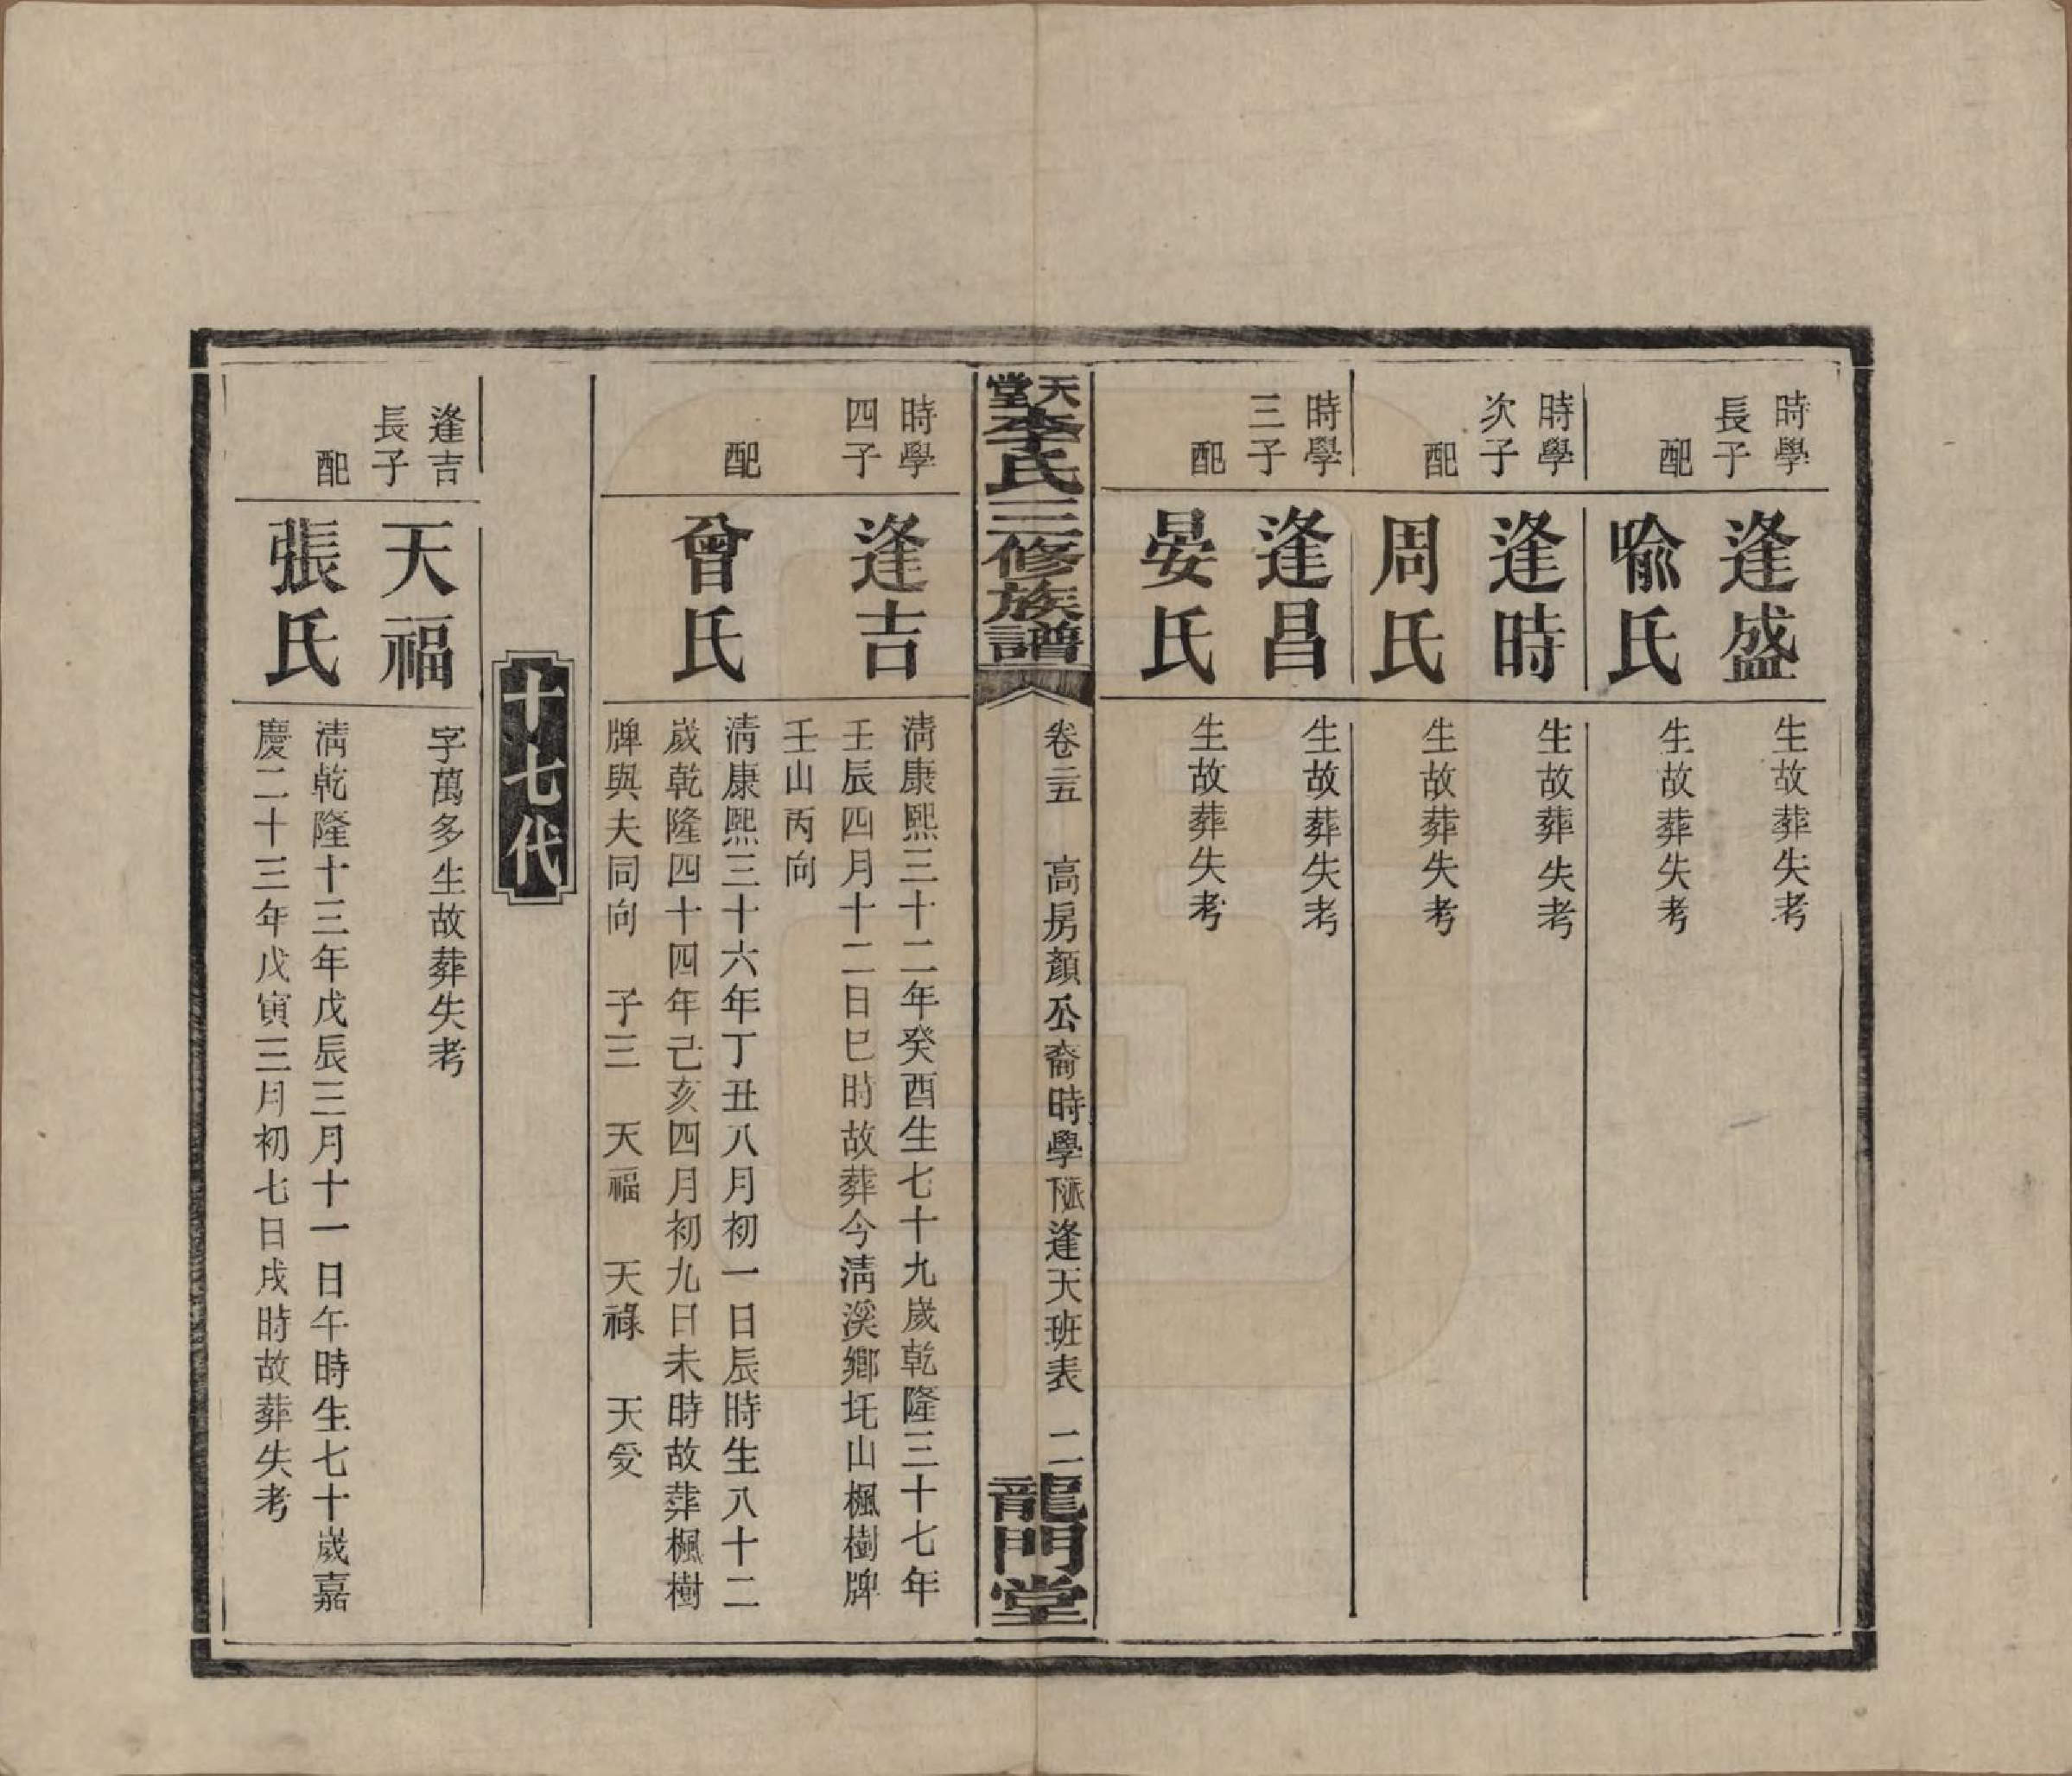 時學
長子
逢盛
生故葬失考
配
喩氏
生故葬失考
時學
次子
逢時
生故葬失考
配
周氏
生故葬失考
時學
三子
逢昌
生故葬失考
配
晏氏
生故葬失考
天堂李氏三修族譜
卷二五 高房顏公裔時學𠂢逢天班表 二
龍門堂
時學
四子
逢吉
淸康熙三十二年癸酉生七十九歲乾隆三十七年
壬辰四月十二日巳時故葬今淸溪鄉圫山楓樹牌
壬山丙向
配
曾氏
淸康熙三十六年丁丑八月初一日辰時生八十二
歲乾隆四十四年己亥四月初九日未時故葬楓樹
牌與夫同向 子三 天福 天祿 天受
十七代
逢吉
長子
天福
字萬多生故葬失考
配
張氏
淸乾隆十三年戊辰三月十一日午時生七十歲嘉
慶二十三年戊寅三月初七日戌時故葬失考